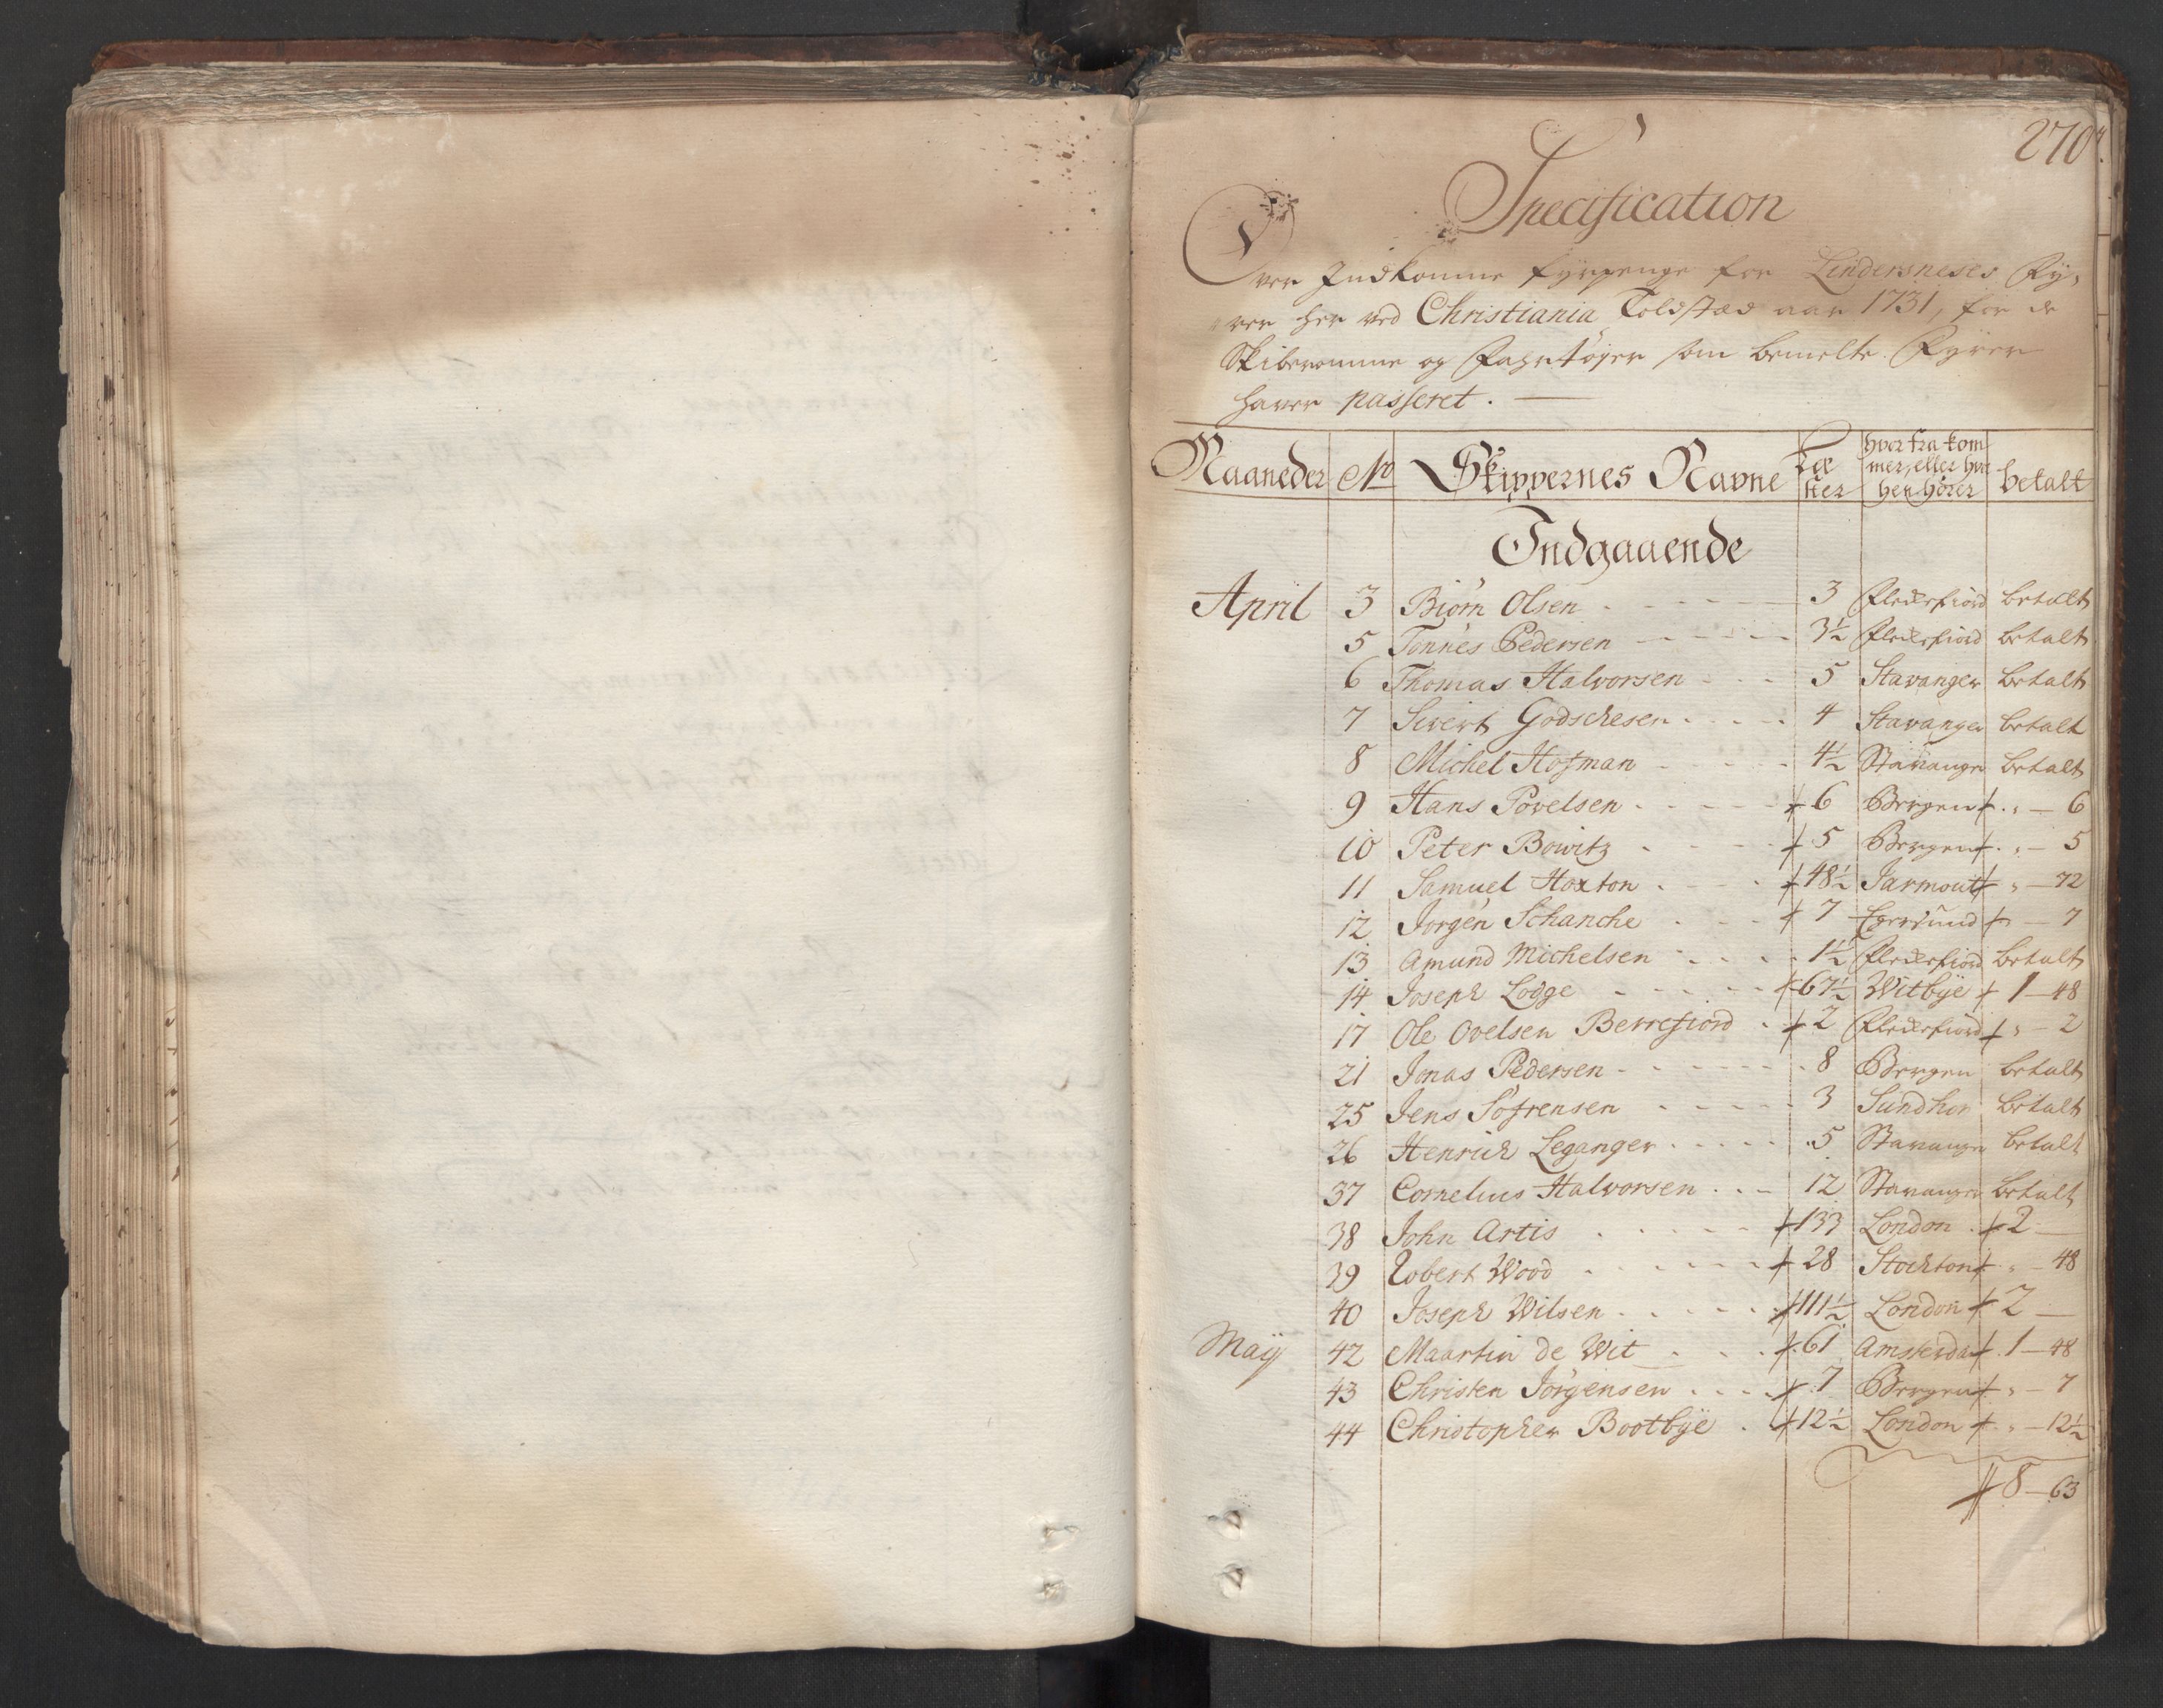 270
Specification
Over Indkomne fyrpenge for Lindersneses Fy,
rer her ved Christiania Toldstæd aar 1731, for de
Skiberomme og Fartøyer som bemelte Fyrer
haver passeret.
Maaneder No Skippernes Navne Læ ster hvor fra kom mer, eller hvor hen hører betalt
Indgaaende
April 3 Biørn Olsen 3 Flekkefiord betalt
5 Tønnes Pedersen 3½ Flekkefiord betalt
6 Thomas Halvorsen 5 Stavanger betalt
7 Sivert Godschesen 4 Stavanger betalt
8 Michel Hofman 4½ Stavanger betalt
9 Hans Povelsen 6 Bergen " — 6
10 Peter Bowitz 5 Bergen " — 5
11 Samuel Hoxton 48½ Jarmout " — 72
12 Jørgen Schanche 7 Egersund — 7
13 Amund Michelsen 1½ Flekkefiord betalt
14 Joseph Lodge 67½ Witbÿe 1 — 48
17 Ole Ovelsen Berrefiord 2 Flekkefiord " — 2
21 Jonas Pedersen 8 Bergen betalt
25 Jens Sofrensen 3 Sundhor betalt
26 Henrich Leganger 5 Stavanger betalt
37 Cornelius Halvorsen 12 Stavanger betalt
38 John Artis 133 London 2 —
39 Robert Wood 28 Stockton " — 48
40 Joseph Wilsen 111½ London 2 —
Maÿ 42 Maartin de Wit 61 Amsterdam 1 — 48
43 Christen Jørgensen 7 Bergen " — 7
44 Christopher Bootbÿe 12½ London " — 12½
8 — 63